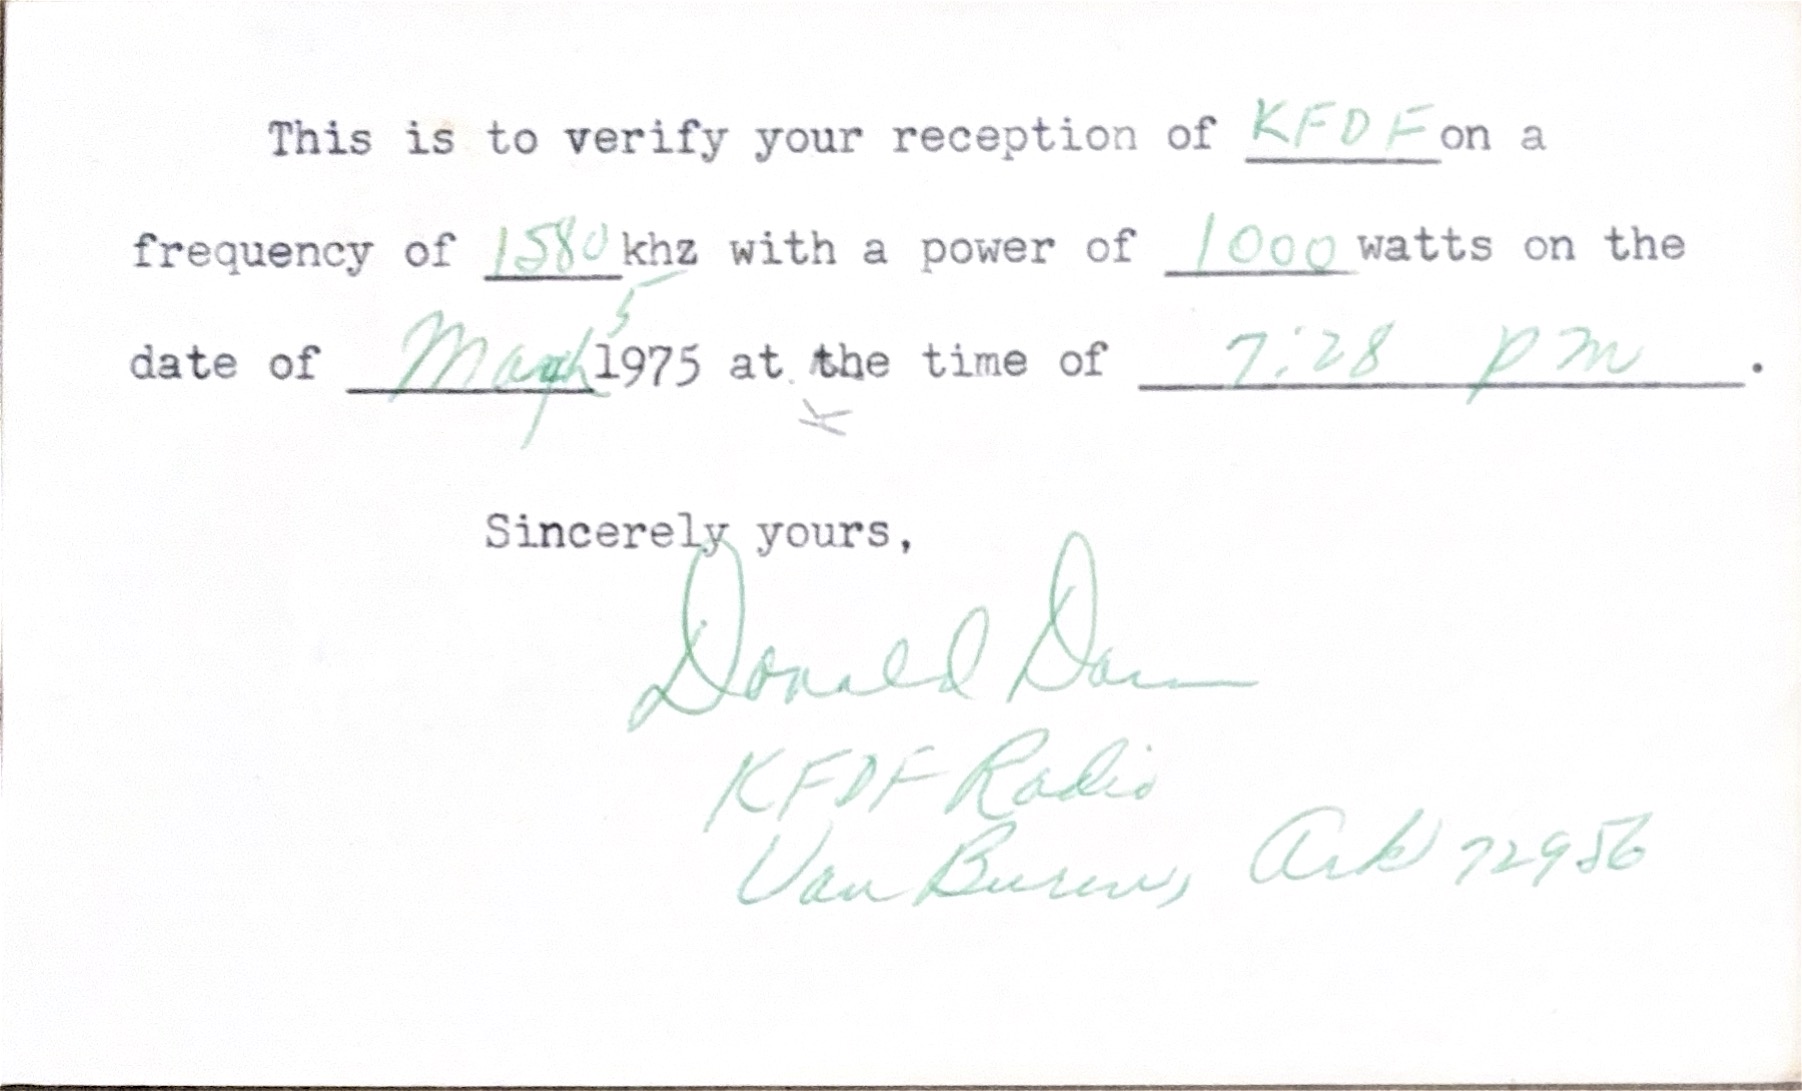 This is to verify your reception of KFDF on a
frequency of 1580 khz with a power of 1000 watts on the
date of March 5 1975 at the time of 7:28 pm.
Sincerely yours,
Donald
KFDF Radio
Van Buren, Ark 72956